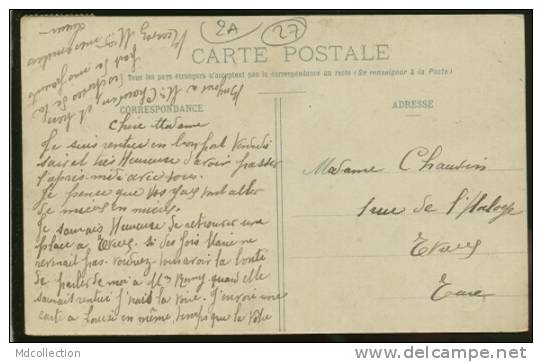 2A
27
CARTE POSTALE
Tous les pays étrangers n'acceptent pas la correspondance au recto (Se renseigner à la Poste)
CORRESPONDANCE
ADRESSE
Chère Madame
Je suis rentrée en bon état Vendredi
soir et très Heureuse d'avoir passer
l'après-midi avec vous.
Je pense que vos yeux vont aller
de mieux en mieux.
Je serais Heureuse de retrouver une
place à Evreux. Si des fois Marie ne
revenait pas. Voudriez vous avoir la bonté
de parler de moi à Mme quand elle
serait rentrée J'irais la voir. J'envoie une
carte à Louise en même temps que la Vôtre
Madame Chauvin
1 rue de l'Horloge
Evreux
Eure
MDcollection
http://www.delcampe.net